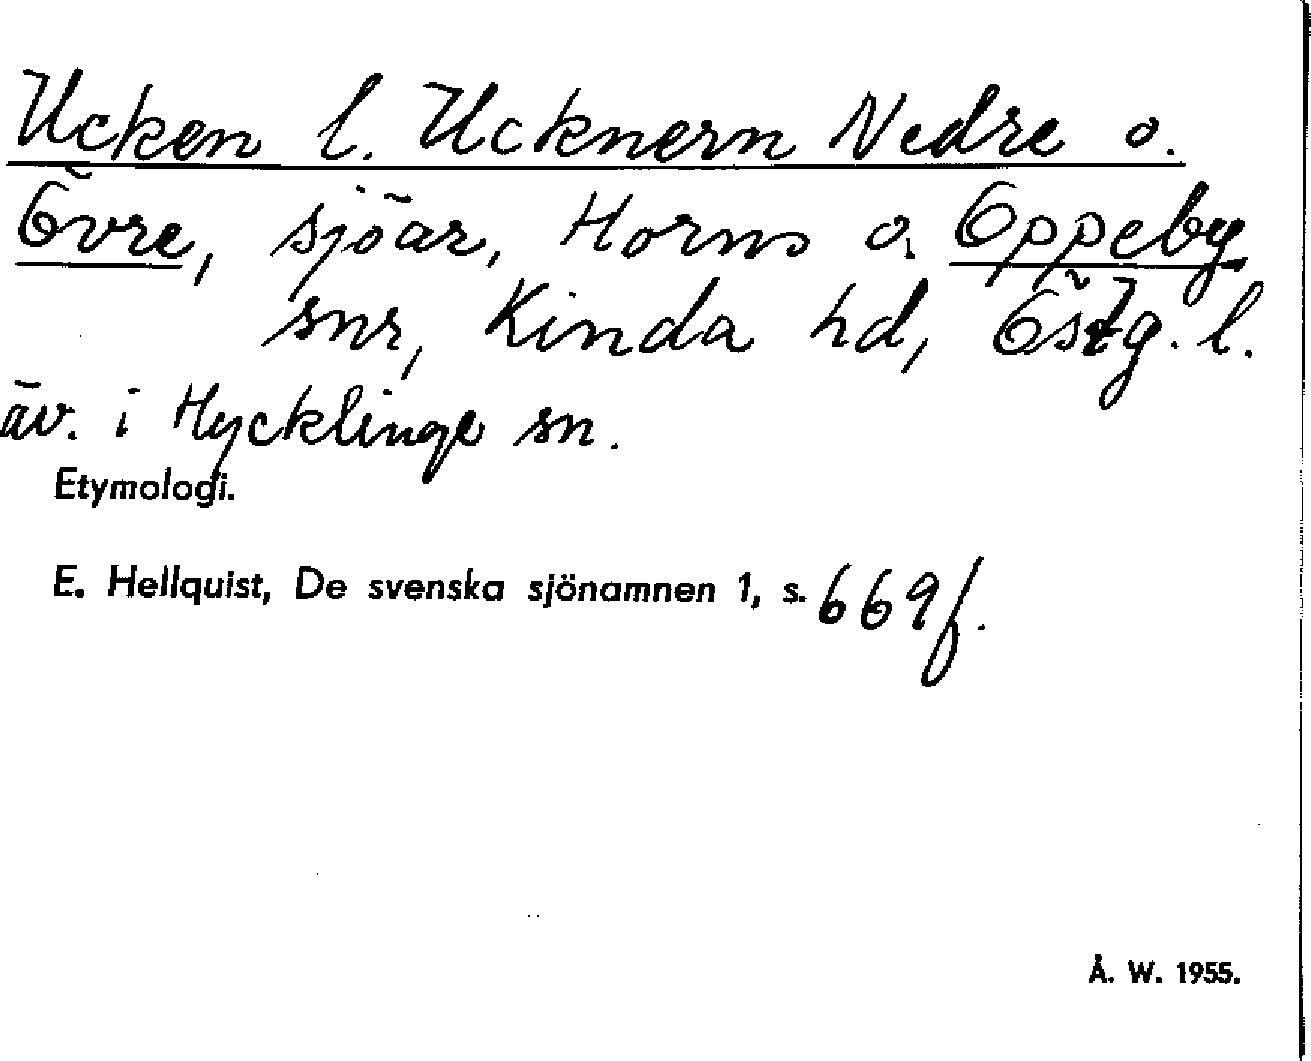 Ucken l. Ucknern Nedre o.
Övre, sjöar, Horns o. Oppeby
snr, Kinda hd, Östg. l.
äv. i Hycklinge sn.
Etymologi.
E. Hellquist, De svenska sjönamnen 1, s. 669f.
Å. W. 1955.